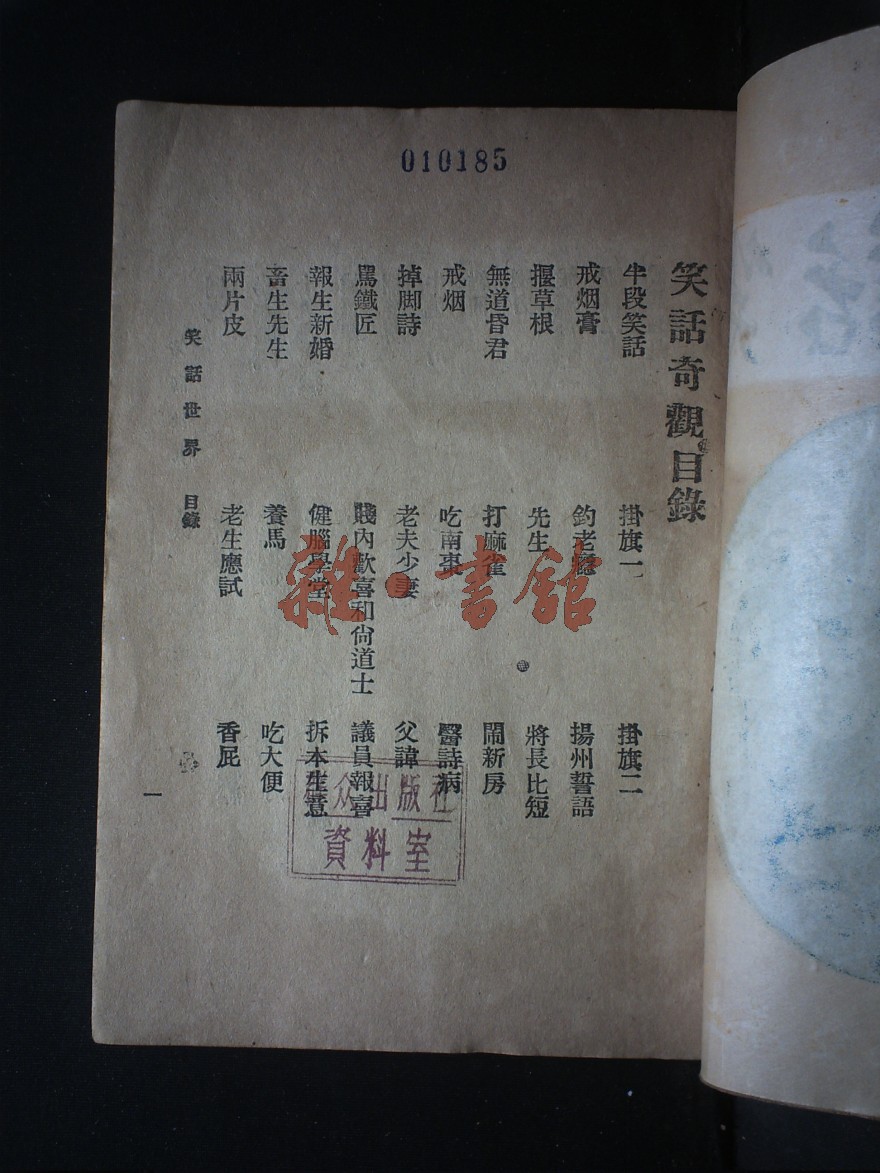 010185
笑話奇觀目錄
半段笑話 掛旗一 掛旗二
戒烟膏 釣老魎 揚州誓語
揠草根 先生 將長比短
無道昏君 打麻雀 鬧新房
戒烟 吃南棗 醫詩病
掉脚詩 老夫少妻 父諱
罵鐵匠 賤內歡喜和尙道士 議員報喜
報生新婚 健腦學堂 拆本生意
畜生先生 養馬 吃大便
兩片皮 老生應試 香屁
笑話世界 目錄
一
众出版社
資料室
雜·書館